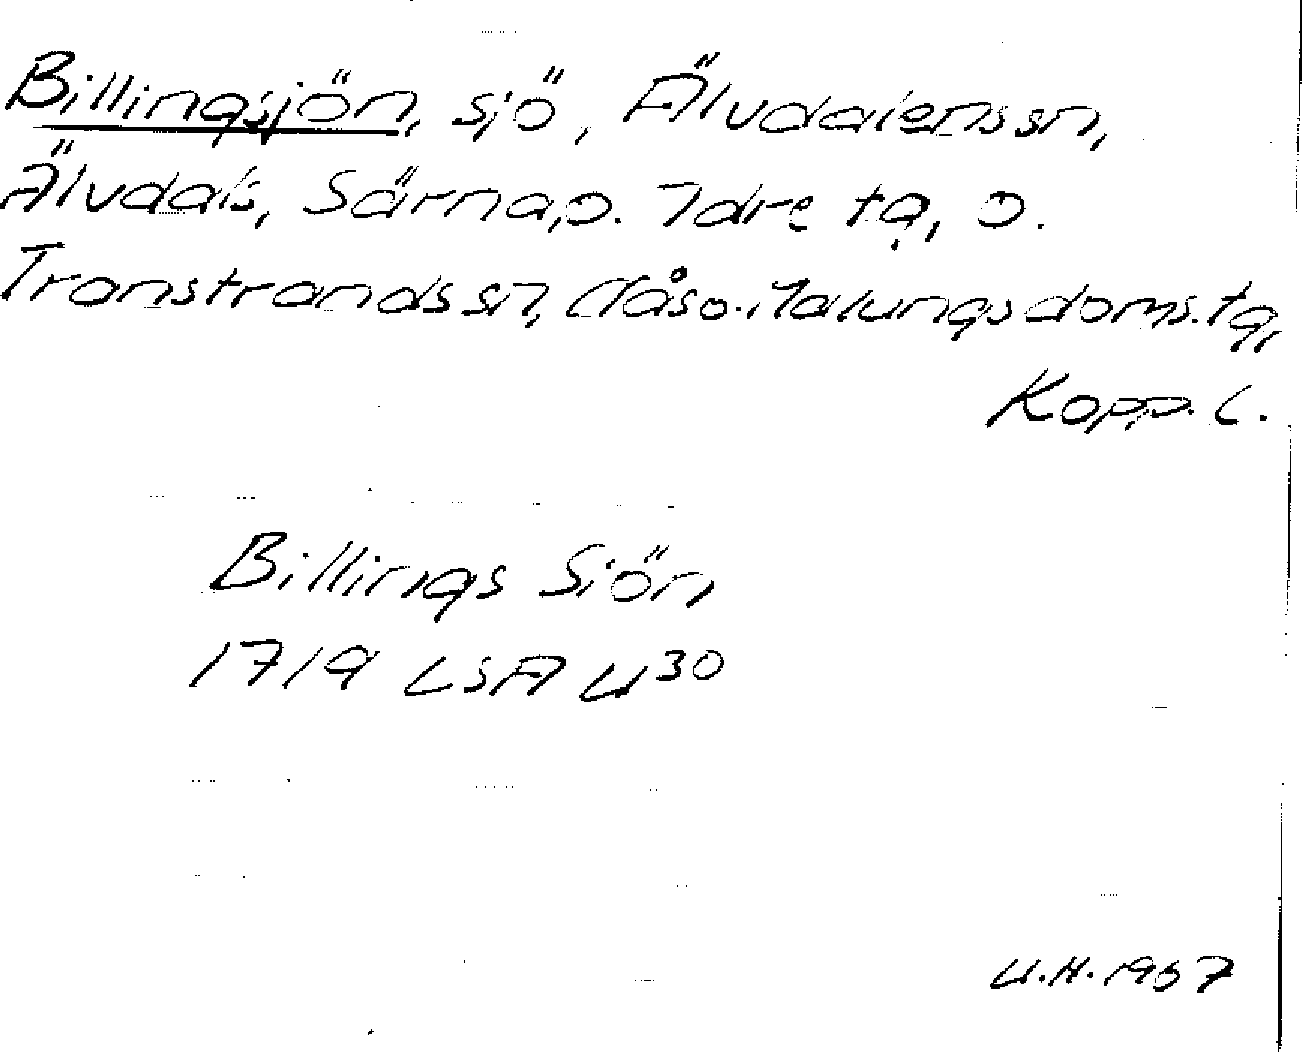 Billingsjön, sjö, Älvdalens sn,
Älvdals, Särna, o. Idre tg, o.
Transtrands sn, Nås o. Malungs doms. tg,
Kopp. l.
Billings Siön
1719 LSA U³⁰
U.H. 1967